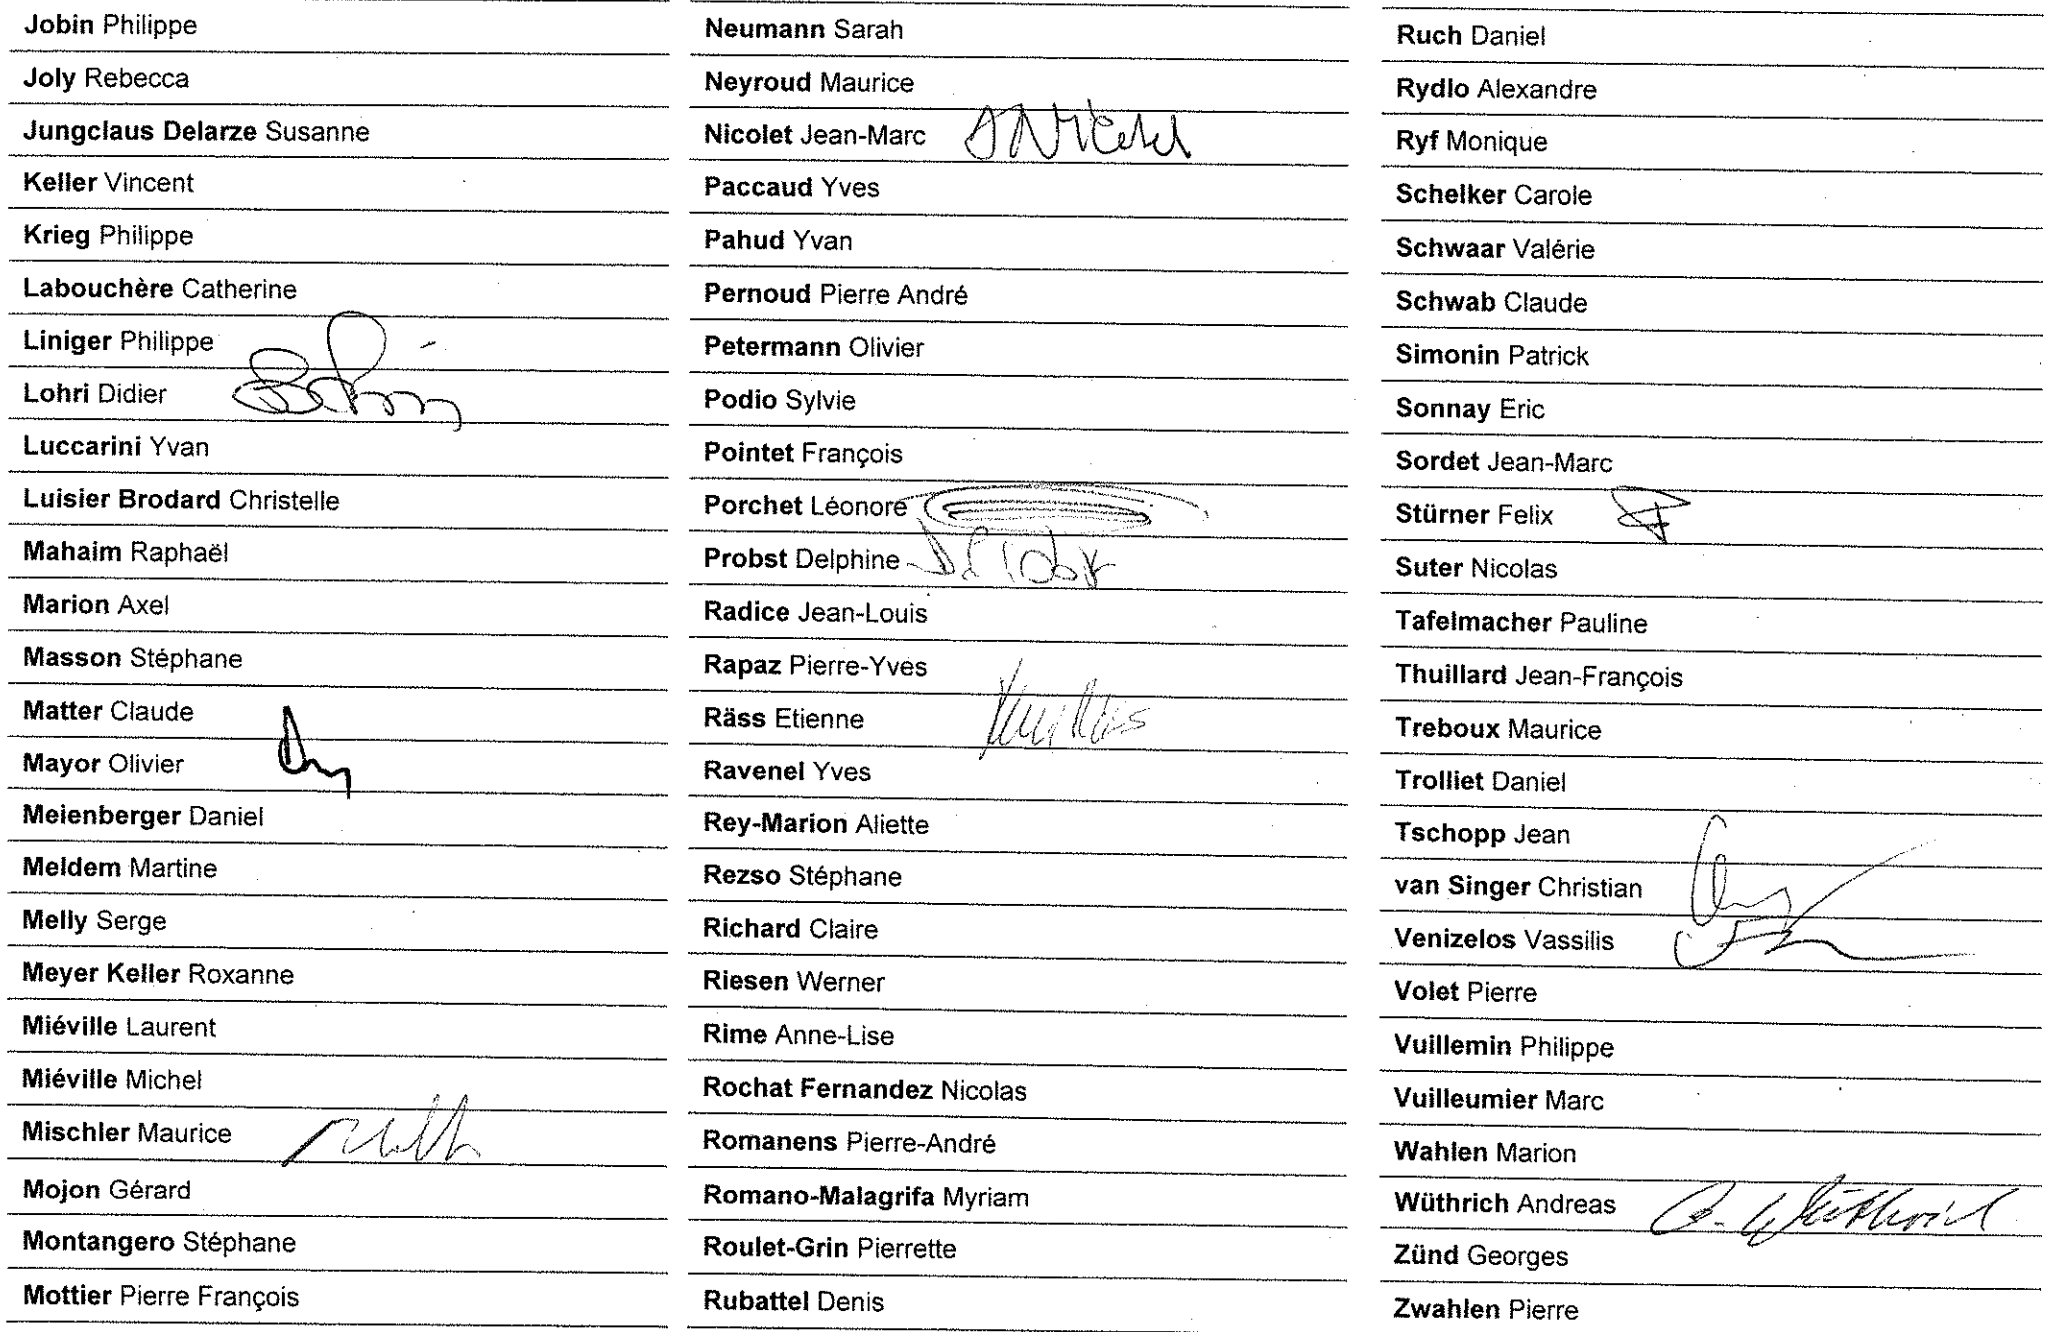 Jobin Philippe
Joly Rebecca
Jungclaus Delarze Susanne
Keller Vincent
Krieg Philippe
Labouchère Catherine
Liniger Philippe
Lohri Didier
Luccarini Yvan
Luisier Brodard Christelle
Mahaim Raphaël
Marion Axel
Masson Stéphane
Matter Claude
Mayor Olivier
Meienberger Daniel
Meldem Martine
Melly Serge
Meyer Keller Roxanne
Miéville Laurent
Miéville Michel
Mischler Maurice
Mojon Gérard
Montangero Stéphane
Mottier Pierre François
Neumann Sarah
Neyroud Maurice
Nicolet Jean-Marc
Paccaud Yves
Pahud Yvan
Pernoud Pierre André
Petermann Olivier
Podio Sylvie
Pointet François
Porchet Léonore
Probst Delphine
Radice Jean-Louis
Rapaz Pierre-Yves
Räss Etienne
Ravenel Yves
Rey-Marion Aliette
Rezso Stéphane
Richard Claire
Riesen Werner
Rime Anne-Lise
Rochat Fernandez Nicolas
Romanens Pierre-André
Romano-Malagrifa Myriam
Roulet-Grin Pierrette
Rubattel Denis
Ruch Daniel
Rydlo Alexandre
Ryf Monique
Schelker Carole
Schwaar Valérie
Schwab Claude
Simonin Patrick
Sonnay Eric
Sordet Jean-Marc
Stürner Felix
Suter Nicolas
Tafelmacher Pauline
Thuillard Jean-François
Treboux Maurice
Trolliet Daniel
Tschopp Jean
van Singer Christian
Venizelos Vassilis
Volet Pierre
Vuillemin Philippe
Vuilleumier Marc
Wahlen Marion
Wüthrich Andreas A. Wüthrich
Zünd Georges
Zwahlen Pierre